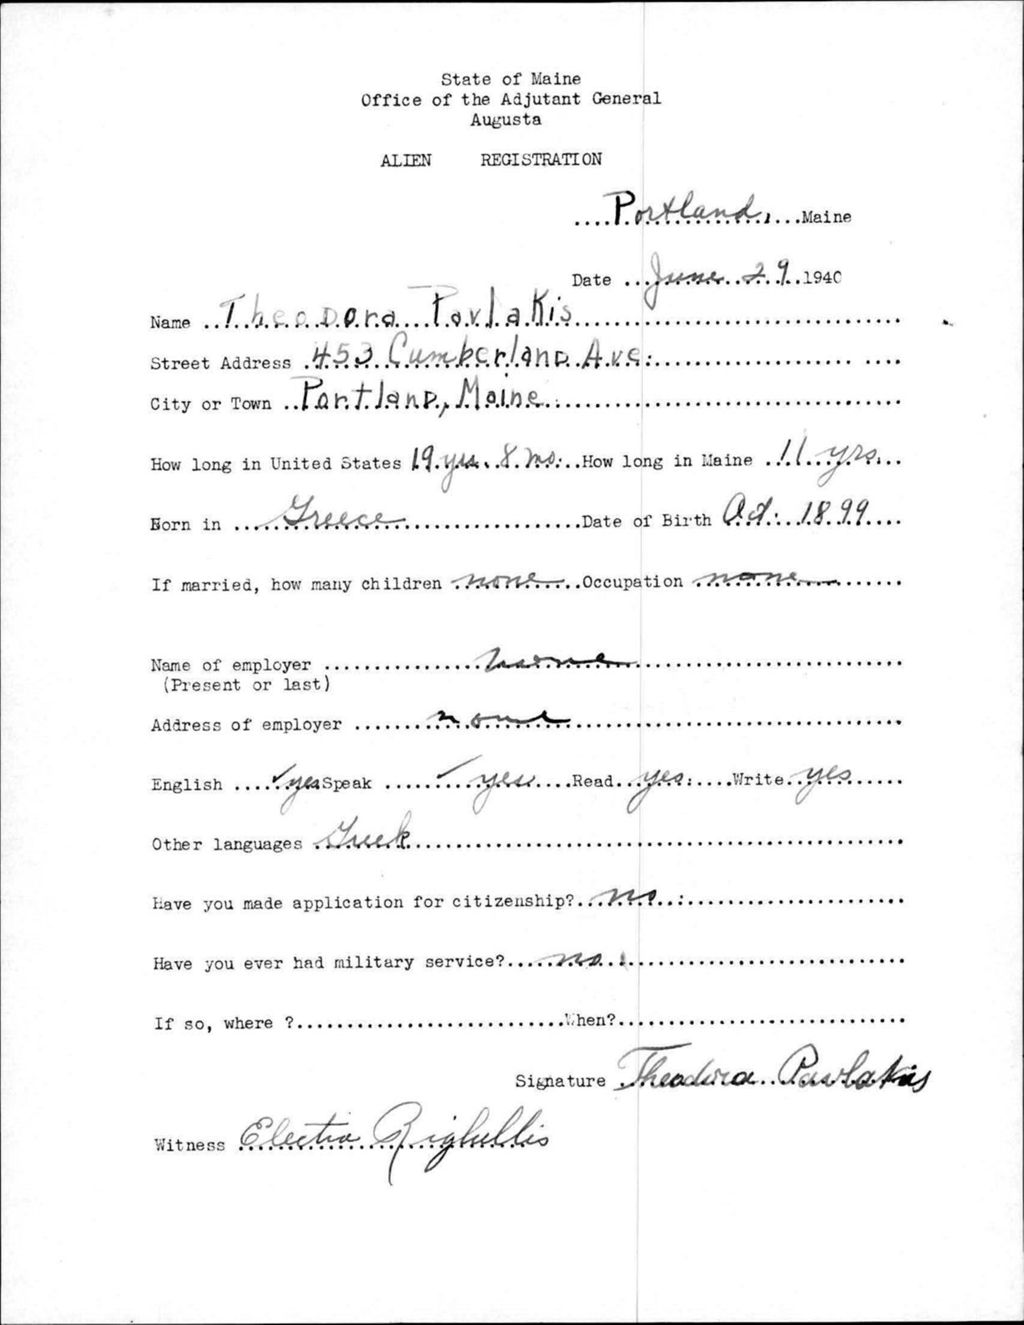 State of Maine
Office of the Adjutant General
Augusta
ALIEN REGISTRATION
....Portland,....Maine
Date ...June 29..1940
Name ..Theodora Pavlakis
Street Address .453 Cumberland Ave.
City or Town ..Portland, Maine
How long in United States 19 yrs. 8 mo...How long in Maine ..11 yrs...
Born in ....Greece....Date of Birth Oct. 1899....
If married, how many children .none...Occupation .none
Name of employer ....none....
(Present or last)
Address of employer ....none....
English ....✓yes Speak ....✓yes....Read...yes....Write..yes....
Other languages .Greek....
Have you made application for citizenship?..no....
Have you ever had military service?....no....
If so, where ?....When?....
Signature Theodora Pavlakis
Witness Electra